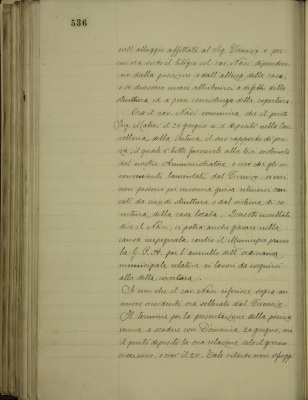 536
nell'alloggio affittati al Sig. e per
cui era sorto il litigio col cav. Nasi dipendeva-
no dalla posizione e dall'altezza della casa,
e se dovessero invece attribuirsi a difetti della
struttura, od a poca considenza della copertura.
Ora il cav. Nasi comunica, che il perito
Ing. il 20 giugno u. s. depositò nella Can-
celleria della Pretura, il suo rapporto di peri-
zia, il quale è tutto favorevole alla tesi sostenuta
dal nostro Amministratore, e cioè che gli in-
convenienti lamentati dal
non possono per nessuna guisa ritenersi cau-
sati da vizio di struttura e dal sistema di co-
pertura della casa locata. Questo risultato
dice il Nasi, ci potrà anche giovare nella
causa impegnata contro il Municipio presso
la G. P. A. per l'annullo dell'ordinanza
municipale relativa ai lavori da eseguirsi
alla detta
Se non che il cav. Nasi riferisce sopra un
nuovo incidente ora sollevato dal
Il termine per la presentazione della perizia
veniva a scadere con Domenica 20 giugno, ma
il perito depositò la sua relazione, solo il giorno
successivo, e cioè il 20. Tale ritardo non